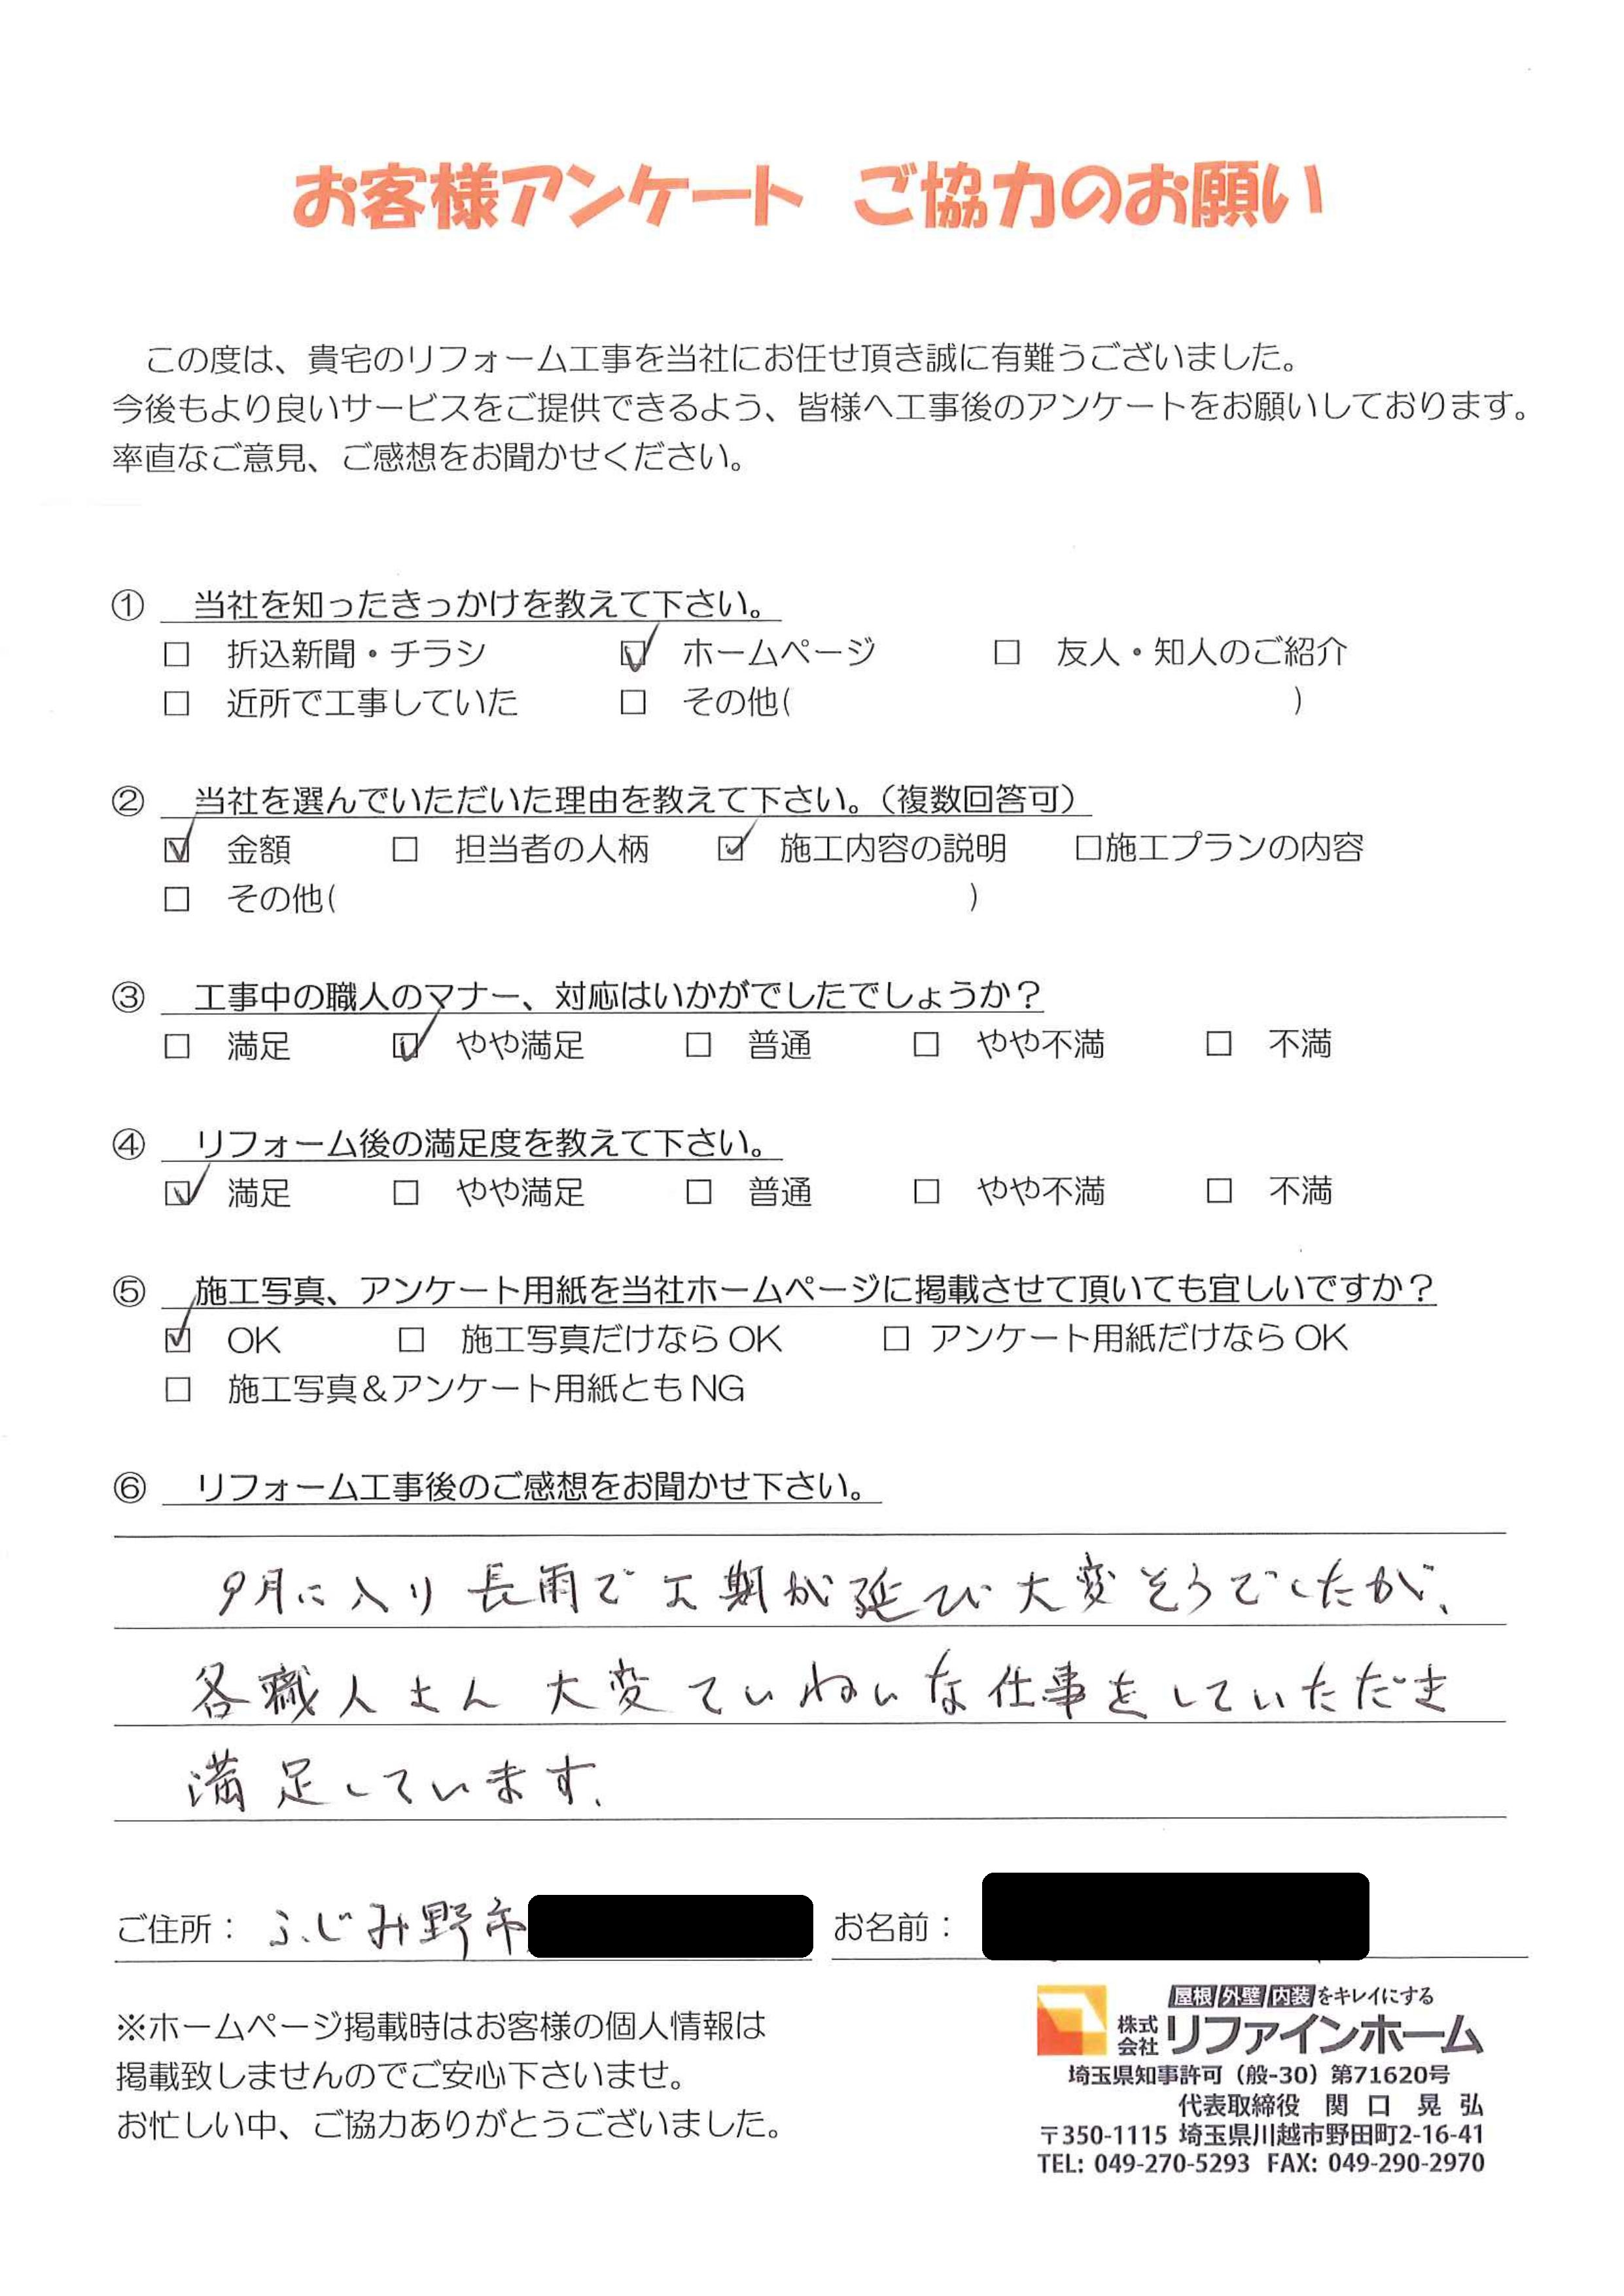 お客様アンケート ご協力のお願い
この度は、貴宅のリフォーム工事を当社にお任せ頂き誠に有難うございました。
今後もより良いサービスをご提供できるよう、皆様へ工事後のアンケートをお願いしております。
率直なご意見、ご感想をお聞かせください。
① 当社を知ったきっかけを教えて下さい。
□ 折込新聞・チラシ ☑ ホームページ □ 友人・知人のご紹介
□ 近所で工事していた □ その他( )
② 当社を選んでいただいた理由を教えて下さい。（複数回答可）
☑ 金額 □ 担当者の人柄 ☑ 施工内容の説明 □施工プランの内容
□ その他( )
③ 工事中の職人のマナー、対応はいかがでしたでしょうか？
□ 満足 ☑ やや満足 □ 普通 □ やや不満 □ 不満
④ リフォーム後の満足度を教えて下さい。
☑ 満足 □ やや満足 □ 普通 □ やや不満 □ 不満
⑤ 施工写真、アンケート用紙を当社ホームページに掲載させて頂いても宜しいですか？
☑ OK □ 施工写真だけなら OK □ アンケート用紙だけなら OK
□ 施工写真＆アンケート用紙とも NG
⑥ リフォーム工事後のご感想をお聞かせ下さい。
9月に入り 長雨で工期が延び大変そうでしたが、
各職人さん 大変ていねいな仕事をしていただき
満足しています.
ご住所： ふじみ野市 お名前：
※ホームページ掲載時はお客様の個人情報は
掲載致しませんのでご安心下さいませ。
お忙しい中、ご協力ありがとうございました。
屋根 外壁 内装をキレイにする
株式会社 リファインホーム
埼玉県知事許可（般-30）第71620号
代表取締役 関口 晃弘
〒350-1115 埼玉県川越市野田町2-16-41
TEL: 049-270-5293 FAX: 049-290-2970